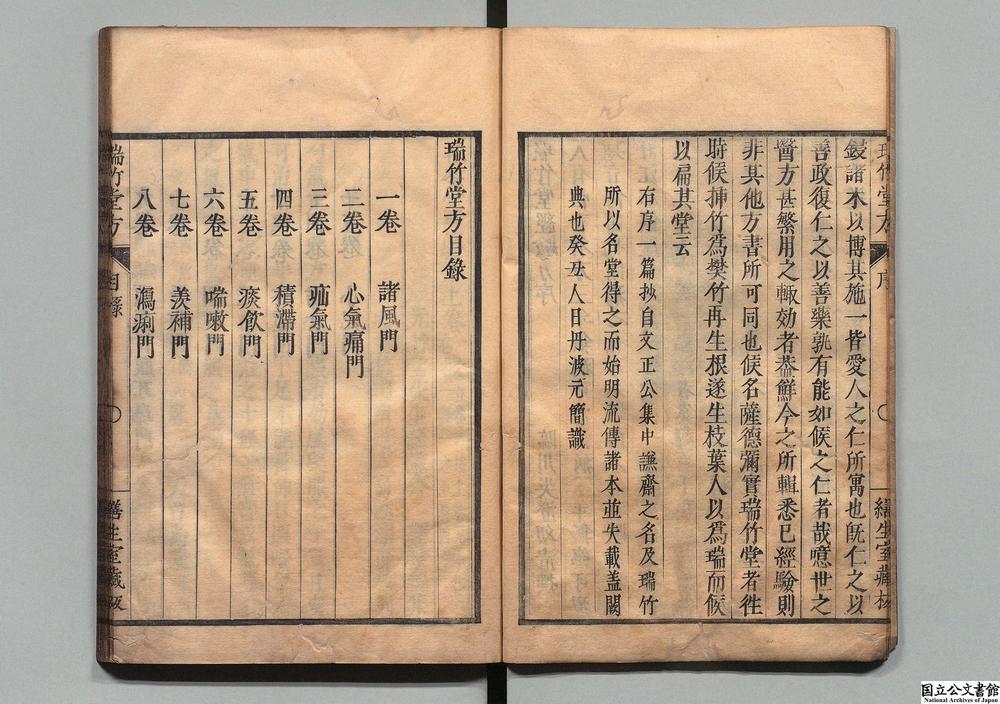 瑞竹堂方
序
繕生室藏板
鋟諸木以博其施一皆愛人之仁所寓也旣仁之以
善政復仁之以善藥孰有能如候之仁者哉噫世之
醫方甚繁用之輙効者葢鮮今之所輯悉已經驗則
非其他方書所可同也候名薩德彌實瑞竹堂者徃
時候揷竹爲樊竹再生根遂生枝葉人以爲瑞而候
以扁其堂云
右序一篇抄自文正公集中謙齋之名及瑞竹
所以名堂得之而始明流傳諸本並失載盖闕
典也癸丑人日丹波元簡識
瑞竹堂方目錄
一卷 諸風門
二卷 心氣痛門
三卷 疝氣門
四卷 積滯門
五卷 痰飮門
六卷 喘嗽門
七卷 羨補門
八卷 瀉痢門
瑞竹堂方
目錄
繕生室藏板
国立公文書館
National Archives of Japan